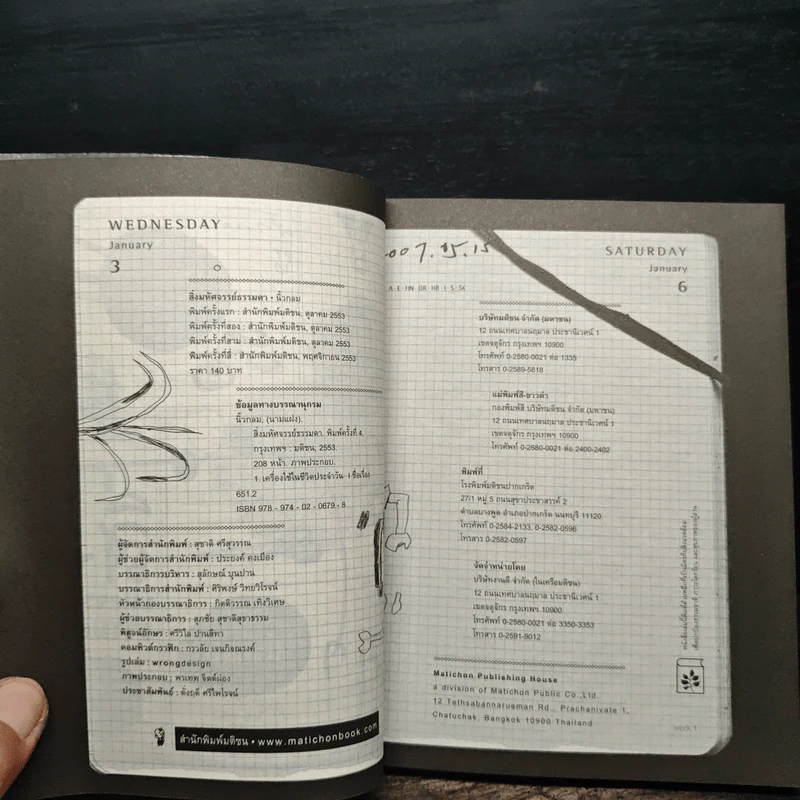 WEDNESDAY
January
3
สิ่งมหัศจรรย์ธรรมดา • นิ้วกลม
พิมพ์ครั้งแรก : สำนักพิมพ์มติชน, ตุลาคม 2553
พิมพ์ครั้งที่สอง : สำนักพิมพ์มติชน, ตุลาคม 2553
พิมพ์ครั้งที่สาม : สำนักพิมพ์มติชน, ตุลาคม 2553
พิมพ์ครั้งที่สี่ : สำนักพิมพ์มติชน, พฤศจิกายน 2553
ราคา 140 บาท
ข้อมูลทางบรรณานุกรม
นิ้วกลม, (นามแฝง).
สิ่งมหัศจรรย์ธรรมดา. พิมพ์ครั้งที่ 4.
กรุงเทพฯ : มติชน, 2553.
208 หน้า. ภาพประกอบ.
1. เครื่องใช้ในชีวิตประจำวัน I ชื่อเรื่อง
651.2
ISBN 978 - 974 - 02 - 0679 - 8
ผู้จัดการสำนักพิมพ์ : สุชาติ ศรีสุวรรณ
ผู้ช่วยผู้จัดการสำนักพิมพ์ : ประยงค์ คงเมือง
บรรณาธิการบริหาร : สุลักษณ์ บุนปาน
บรรณาธิการสำนักพิมพ์ : ศิริพงษ์ วิทยวิโรจน์
หัวหน้ากองบรรณาธิการ : กิตติวรรณ เทิงวิเศษ
ผู้ช่วยบรรณาธิการ : สุภชัย สุชาติสุธาธรรม
พิสูจน์อักษร : ศรีวิไล ปานสีทา
คอมพิวต์กราฟิก : กรวลัย เจนกิจณรงค์
รูปเล่ม : wrongdesign
ภาพประกอบ : พรเทพ จิตต์ผ่อง
ประชาสัมพันธ์ : ตั้งฤดี ศรีไพโรจน์
สำนักพิมพ์มติชน • www.matichonbook.com
007.15.15
SATURDAY
January
6
บริษัทมติชน จำกัด (มหาชน)
12 ถนนเทศบาลนฤมาล ประชานิเวศน์ 1
เขตจตุจักร กรุงเทพฯ 10900
โทรศัพท์ 0-2580-0021 ต่อ 1335
โทรสาร 0-2589-5818
แม่พิมพ์สี-ขาวดำ
กองพิมพ์สี บริษัทมติชน จำกัด (มหาชน)
12 ถนนเทศบาลนฤมาล ประชานิเวศน์ 1
เขตจตุจักร กรุงเทพฯ 10900
โทรศัพท์ 0-2580-0021 ต่อ 2400-2402
พิมพ์ที่
โรงพิมพ์มติชนปากเกร็ด
27/1 หมู่ 5 ถนนสุขาประชาสรรค์ 2
ตำบลบางพูด อำเภอปากเกร็ด นนทบุรี 11120
โทรศัพท์ 0-2584-2133, 0-2582-0596
โทรสาร 0-2582-0597
จัดจำหน่ายโดย
บริษัทงานดี จำกัด (ในเครือมติชน)
12 ถนนเทศบาลนฤมาล ประชานิเวศน์ 1
เขตจตุจักร กรุงเทพฯ 10900
โทรศัพท์ 0-2580-0021 ต่อ 3350-3353
โทรสาร 0-2591-9012
Matichon Publishing House
a division of Matichon Public Co.,Ltd.
12 Tethsabannarueman Rd., Prachanivate 1,
Chatuchak, Bangkok 10900 Thailand
WEEK 1